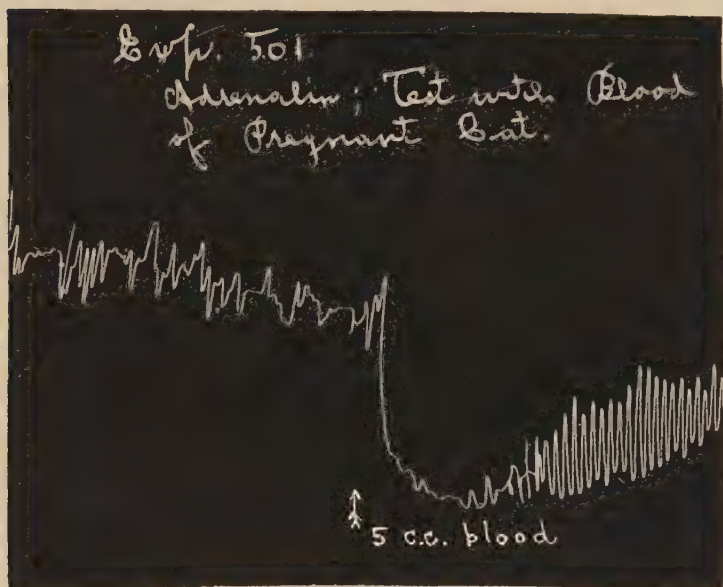 Exp. 501
Adrenalin; Test with Blood
of Pregnant Cat.
5 c.c. blood